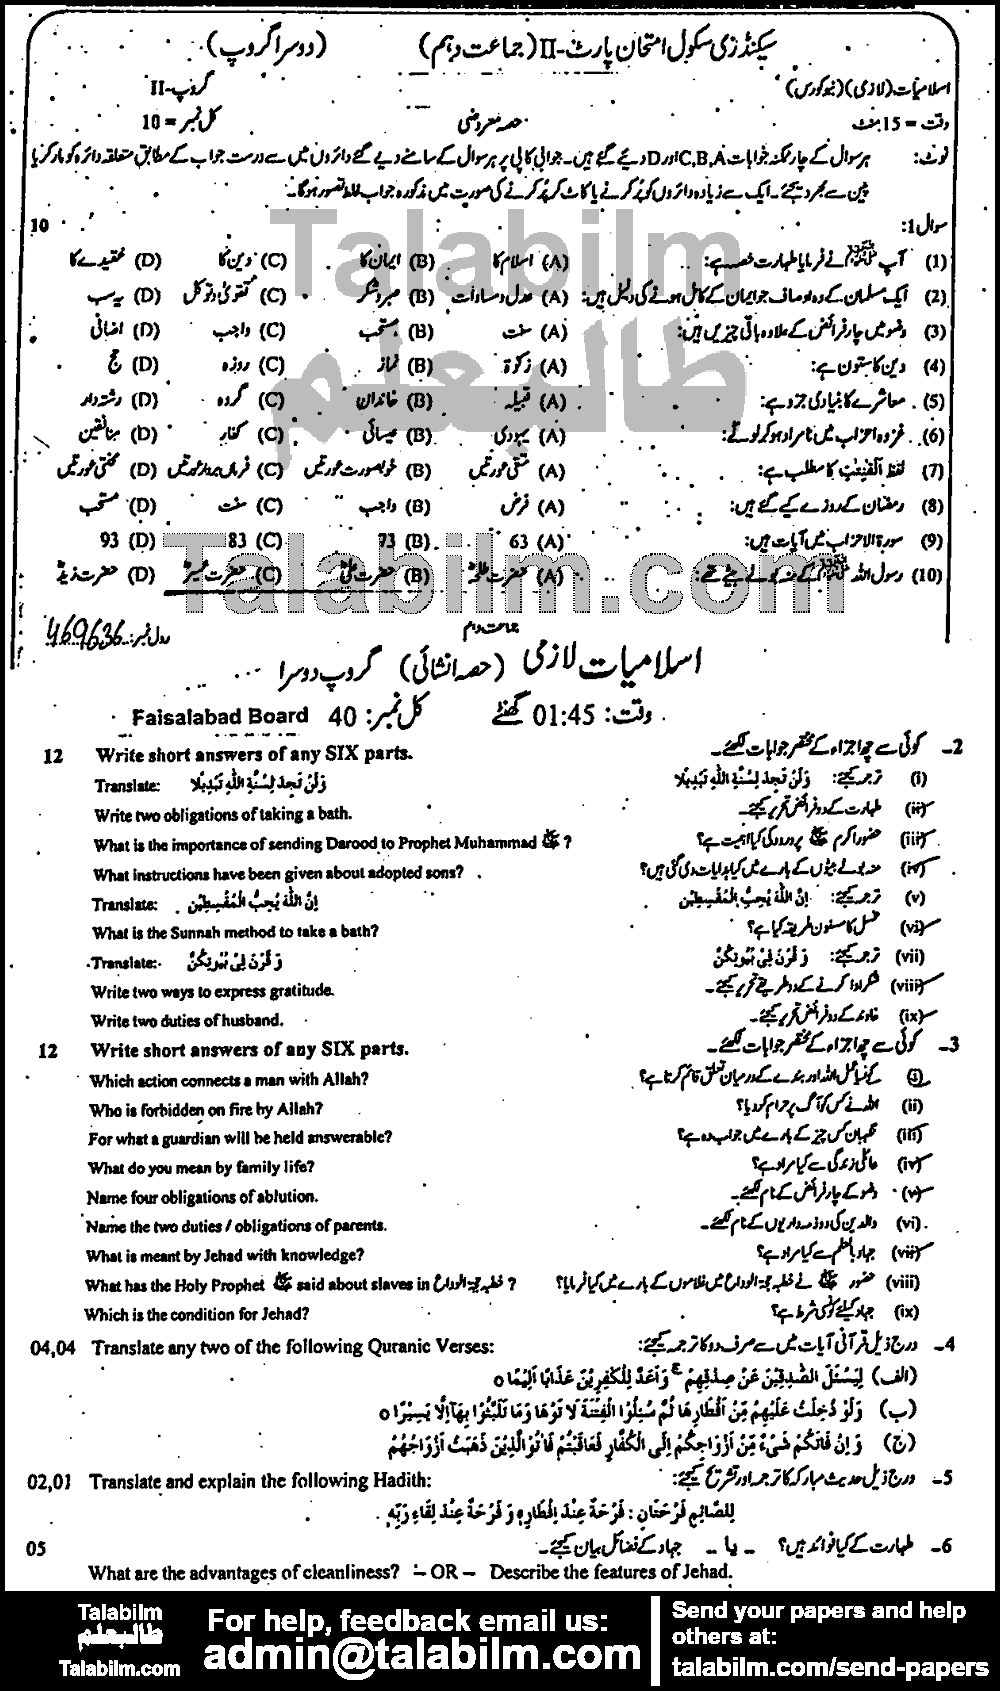 سیکنڈری سکول امتحان پارٹ-II (جماعت دہم) (دوسرا گروپ)
اسلامیات (لازمی) (نیو کورس) گروپ-II
وقت = 15 منٹ حصہ معروضی کل نمبر = 10
نوٹ: ہر سوال کے چار ممکنہ جوابات C,B,A اور D دیئے گئے ہیں۔ جوابی کاپی پر ہر سوال کے سامنے دیے گئے دائروں میں سے درست جواب کے مطابق متعلقہ دائرہ کو مارکر یا
پین سے بھر دیجئے۔ ایک سے زیادہ دائروں کو پُر کرنے یا کاٹ کر پُر کرنے کی صورت میں مذکورہ جواب غلط تصور ہوگا۔
سوال 1: 10
(1) آپ ﷺ نے فرمایا طہارت نصف ہے: (A) اسلام کا (B) ایمان کا (C) دین کا (D) عقیدے کا
(2) ایک مسلمان کے وہ اوصاف جو ایمان کے کامل ہونے کی دلیل ہیں: (A) عدل و مساوات (B) صبر و شکر (C) تقویٰ و توکل (D) یہ سب
(3) وضو میں چار فرائض کے علاوہ باقی چیزیں ہیں: (A) سنت (B) مستحب (C) واجب (D) اضافی
(4) دین کا ستون ہے: (A) زکوٰۃ (B) نماز (C) روزہ (D) حج
(5) معاشرے کا بنیادی جزو ہے: (A) قبیلہ (B) خاندان (C) گروہ (D) رشتہ دار
(6) غزوہ احزاب میں نامراد ہو کر لوٹے: (A) یہودی (B) عیسائی (C) کفار (D) منافقین
(7) لفظ اَلْقٰنِتٰتِ کا مطلب ہے: (A) متقی عورتیں (B) خوبصورت عورتیں (C) فرماں بردار عورتیں (D) محنتی عورتیں
(8) رمضان کے روزے کیے گئے ہیں: (A) فرض (B) واجب (C) سنت (D) مستحب
(9) سورۃ الاحزاب میں آیات ہیں: (A) 63 (B) 73 (C) 83 (D) 93
(10) رسول اللہ ﷺ کے منہ بولے بیٹے تھے: (A) حضرت طلحہؓ (B) حضرت علیؓ (C) حضرت عمیرؓ (D) حضرت زیدؓ
Talabilm
طالبعلم
Talabilm.com
جماعت دہم رول نمبر: 469636
اسلامیات لازمی (حصہ انشائی) گروپ دوسرا
وقت: 01:45 گھنٹے کل نمبر: 40 Faisalabad Board
12 Write short answers of any SIX parts. 2- کوئی سے چھ اجزاء کے مختصر جوابات لکھئے۔
Translate: وَلَنْ تَجِدَ لِسُنَّةِ اللّٰهِ تَبْدِيْلًا (i) ترجمہ کیجئے: وَلَنْ تَجِدَ لِسُنَّةِ اللّٰهِ تَبْدِيْلًا
Write two obligations of taking a bath. (ii) طہارت کے دو فرائض تحریر کیجئے۔
What is the importance of sending Darood to Prophet Muhammad ﷺ ? (iii) حضور اکرم ﷺ پر درود کی کیا اہمیت ہے؟
What instructions have been given about adopted sons? (iv) منہ بولے بیٹوں کے بارے میں کیا ہدایات دی گئی ہیں؟
Translate: اِنَّ اللّٰهَ يُحِبُّ الْمُقْسِطِيْنَ (v) ترجمہ کیجئے: اِنَّ اللّٰهَ يُحِبُّ الْمُقْسِطِيْنَ
What is the Sunnah method to take a bath? (vi) غسل کا مسنون طریقہ کیا ہے؟
Translate: وَقَرْنَ فِيْ بُيُوْتِكُنَّ (vii) ترجمہ کیجئے: وَقَرْنَ فِيْ بُيُوْتِكُنَّ
Write two ways to express gratitude. (viii) شکر ادا کرنے کے دو طریقے تحریر کیجئے۔
Write two duties of husband. (ix) خاوند کے دو فرائض تحریر کیجئے۔
12 Write short answers of any SIX parts. 3- کوئی سے چھ اجزاء کے مختصر جوابات لکھئے۔
Which action connects a man with Allah? (i) کونسا عمل اللہ اور بندے کے درمیان تعلق قائم کرتا ہے؟
Who is forbidden on fire by Allah? (ii) اللہ نے کس کو آگ پر حرام کر دیا؟
For what a guardian will be held answerable? (iii) نگہبان کس چیز کے بارے میں جواب دہ ہے؟
What do you mean by family life? (iv) عائلی زندگی سے کیا مراد ہے؟
Name four obligations of ablution. (v) وضو کے چار فرائض کے نام لکھئے۔
Name the two duties / obligations of parents. (vi) والدین کی دو ذمہ داریوں کے نام لکھئے۔
What is meant by Jehad with knowledge? (vii) جہاد بالعلم سے کیا مراد ہے؟
What has the Holy Prophet ﷺ said about slaves in خطبہ حجۃ الوداع ? (viii) حضور ﷺ نے خطبہ حجۃ الوداع میں غلاموں کے بارے میں کیا فرمایا؟
Which is the condition for Jehad? (ix) جہاد کیلئے کونسی شرط ہے؟
04,04 Translate any two of the following Quranic Verses: 4- درج ذیل قرآنی آیات میں سے صرف دو کا ترجمہ کیجئے:
(الف) لِيَسْئَلَ الصّٰدِقِيْنَ عَنْ صِدْقِهِمْ ۚ وَاَعَدَّ لِلْكٰفِرِيْنَ عَذَابًا اَلِيْمًا ٥
(ب) وَلَوْ دُخِلَتْ عَلَيْهِمْ مِّنْ اَقْطَارِهَا ثُمَّ سُئِلُوا الْفِتْنَةَ لَاٰتَوْهَا وَمَا تَلَبَّثُوْا بِهَآ اِلَّا يَسِيْرًا ٥
(ج) وَاِنْ فَاتَكُمْ شَيْءٌ مِّنْ اَزْوَاجِكُمْ اِلَى الْكُفَّارِ فَعَاقَبْتُمْ فَاٰتُوا الَّذِيْنَ ذَهَبَتْ اَزْوَاجُهُمْ
02,01 Translate and explain the following Hadith: 5- درج ذیل حدیث مبارکہ کا ترجمہ اور تشریح کیجئے:
لِلصَّائِمِ فَرْحَتَانِ: فَرْحَةٌ عِنْدَ اِفْطَارِهِ وَ فَرْحَةٌ عِنْدَ لِقَاءِ رَبِّهِ۔
05 6- طہارت کے کیا فوائد ہیں؟ -- یا -- جہاد کے فضائل بیان کیجئے۔
What are the advantages of cleanliness? – OR – Describe the features of Jehad.
Talabilm
طالبعلم
Talabilm.com
For help, feedback email us:
admin@talabilm.com
Send your papers and help
others at:
talabilm.com/send-papers